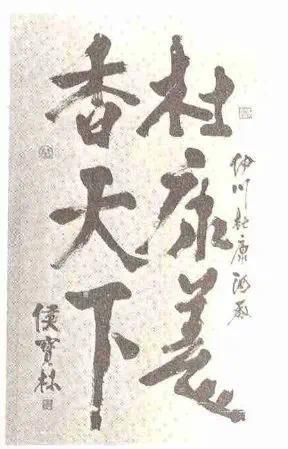 伊川杜康酒厰
杜康美
香天下
侯寶林